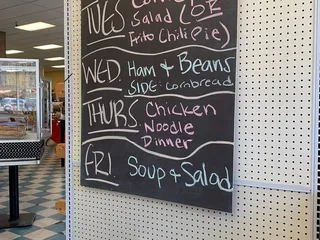 TUES
Salad (OR
Frito Chili Pie)
WED. Ham & Beans
SIDE: Cornbread
THURS Chicken
Noodle
Dinner
FRI. Soup & Salad